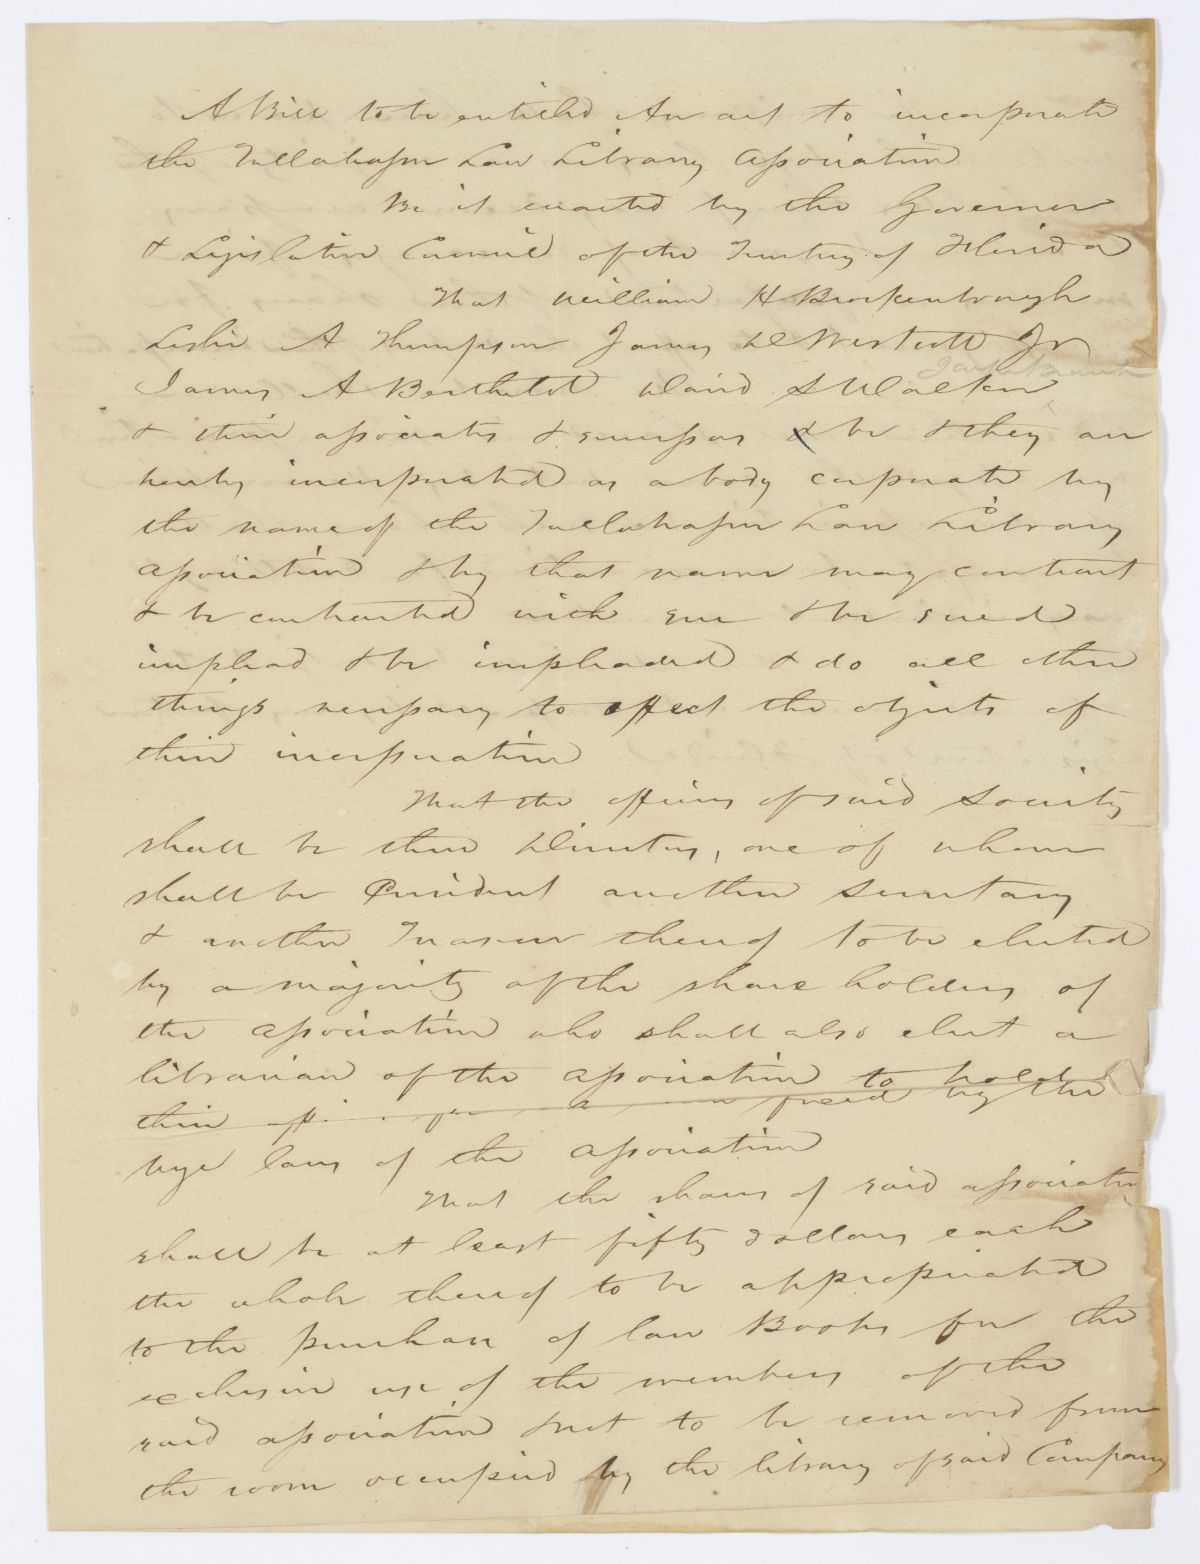 A Bill to be entitled An act to incorporate
the Tallahassee Law Library Association
Be it enacted by the Governor
& Legislative Council of the Territory of Florida
That William H Brockenbrough
Leslie A Thompson James D Westcott Jr
James A Berthelot David S Walker
& their associates & successors & be & they are
hereby incorporated as a body corporate by
the name of the Tallahassee Law Library
Association & by that name may contract
& be contracted with sue & be sued
implead & be impleaded & do all other
things necessary to effect the objects of
their incorporation
That the officers of said Society
shall be three Directors, one of whom
shall be President another Secretary
& another Treasurer thereof to be elected
by a majority of the share holders of
the association who shall also elect a
librarian of the association to hold
their for a fixed by the
bye laws of the Association
That the shares of said association
shall be at least fifty dollars each
the whole thereof to be appropriated
to the purchase of law Books for the
exclusive use of the members of the
said association & not to be removed from
the room occupied by the library of said Company